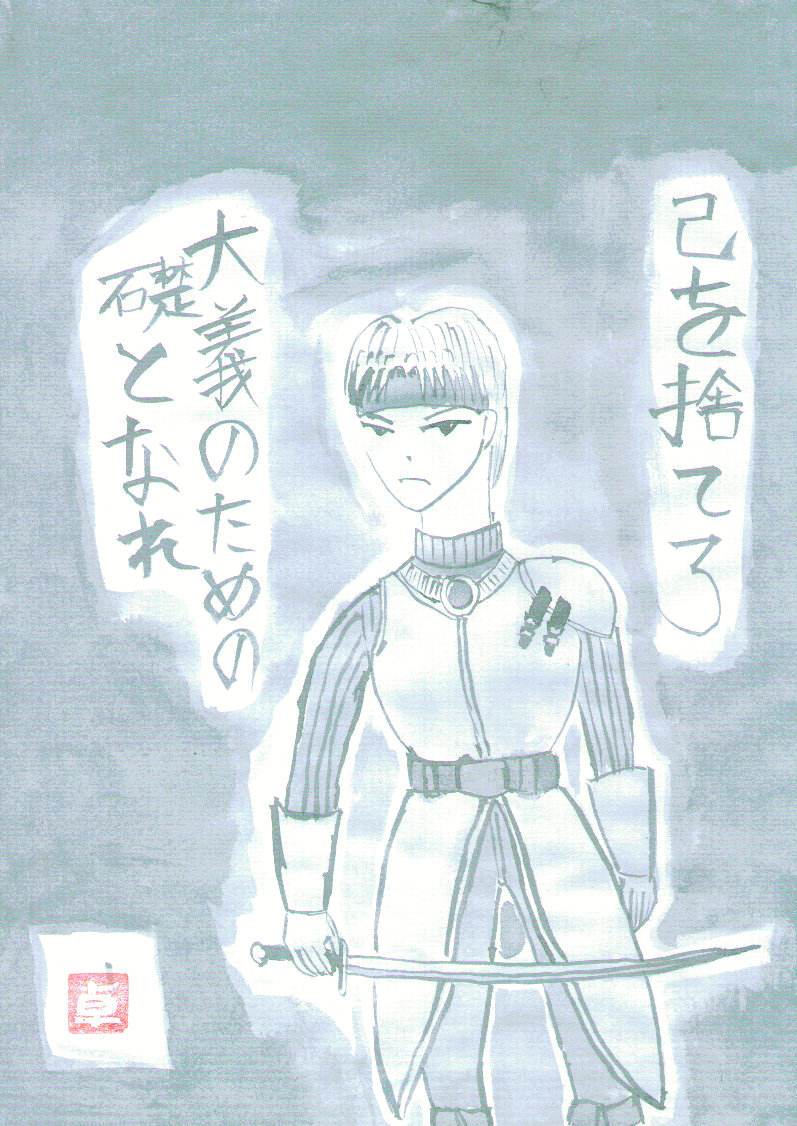 己を捨てろ
大義のための
礎となれ
卓